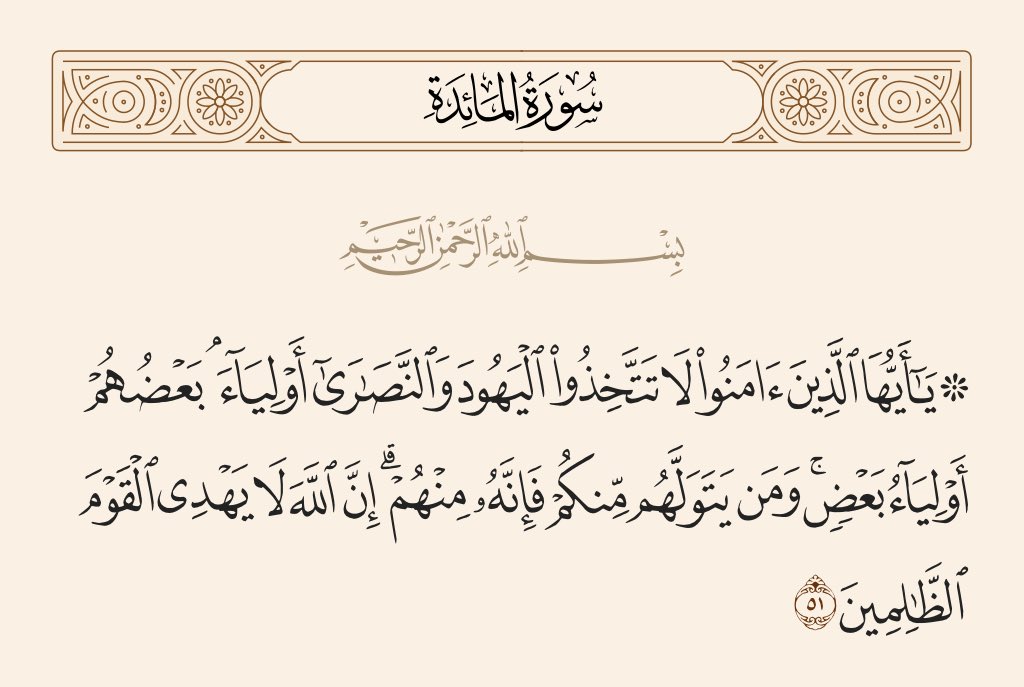 سُورَةُ المَائِدَةِ
بِسْمِ ٱللَّهِ ٱلرَّحْمَٰنِ ٱلرَّحِيمِ
۞ يَٰٓأَيُّهَا ٱلَّذِينَ ءَامَنُوا۟ لَا تَتَّخِذُوا۟ ٱلْيَهُودَ وَٱلنَّصَٰرَىٰٓ أَوْلِيَآءَ ۘ بَعْضُهُمْ
أَوْلِيَآءُ بَعْضٍ ۚ وَمَن يَتَوَلَّهُم مِّنكُمْ فَإِنَّهُۥ مِنْهُمْ ۗ إِنَّ ٱللَّهَ لَا يَهْدِى ٱلْقَوْمَ
ٱلظَّٰلِمِينَ ٥١